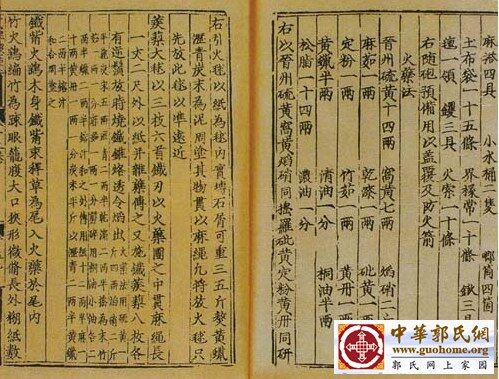 麻搭四具 小水桶二隻 唧筒四箇
土布袋一十五條 界椽 一十條 鍬三具
氈一領 钁三具 火索一十條
右隨砲預備用以蓋覆及防火箭
火藥法
晉州硫黃十四兩 窩黃七兩 焰硝二
麻茹一兩 乾漆一兩 砒黃一
定粉一兩 竹茹一兩 黃丹一兩
黃蠟半兩 清油一分 桐油半兩
松脂一十四兩 濃油一分
右以晉州硫黃窩黃焰硝同擣羅砒黃定粉黃丹同研
右引火毬以紙為毬內實塼石屑可重三五斤熬黃蠟
瀝青炭末為泥周塗其物貫以麻繩凡將放火毬只
先放此毬以準遠近
蒺藜火毬以三枚六首鐵刃以火藥團之中貫麻繩長
一丈二尺外以紙并雜藥傅之又施鐵蒺藜八枚各
有逆鬚放時燒鐵錐烙透令焰出
二兩半鎔汁
和合周塗之
鐵嘴火鷂木身鐵嘴束稈草為尾入火藥於尾內
竹火鷂編竹為疎眼籠腹大口狹形微脩長外糊紙數
中華郭氏網
www.guohome.org
郭氏网上家园